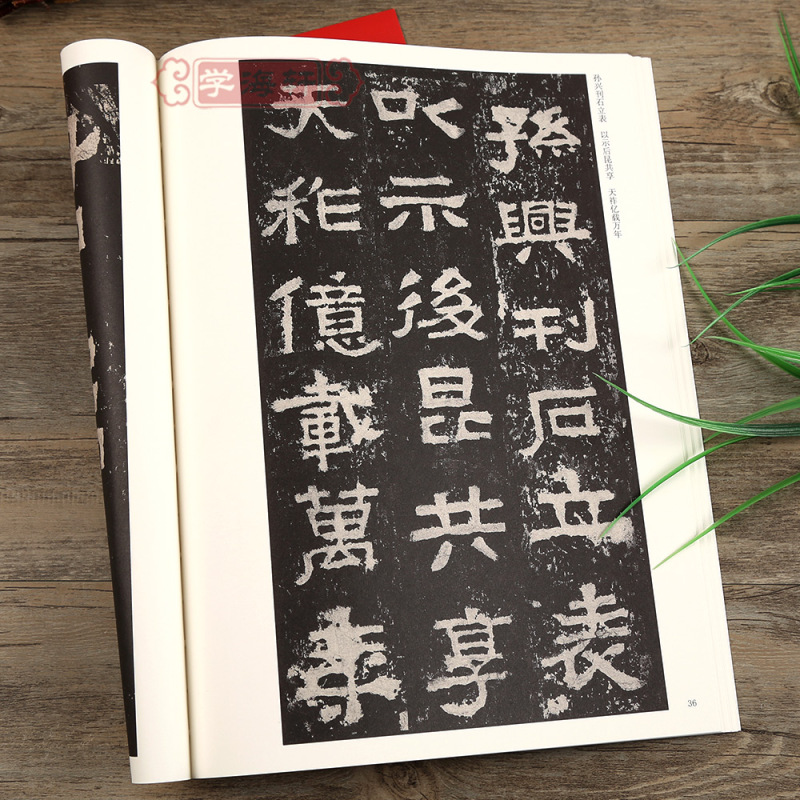 学海轩
孙兴刊石立表 以示后昆共享 天祚亿载万年
孫興刊石立表
以示後昆共享
天祚億載萬年
36